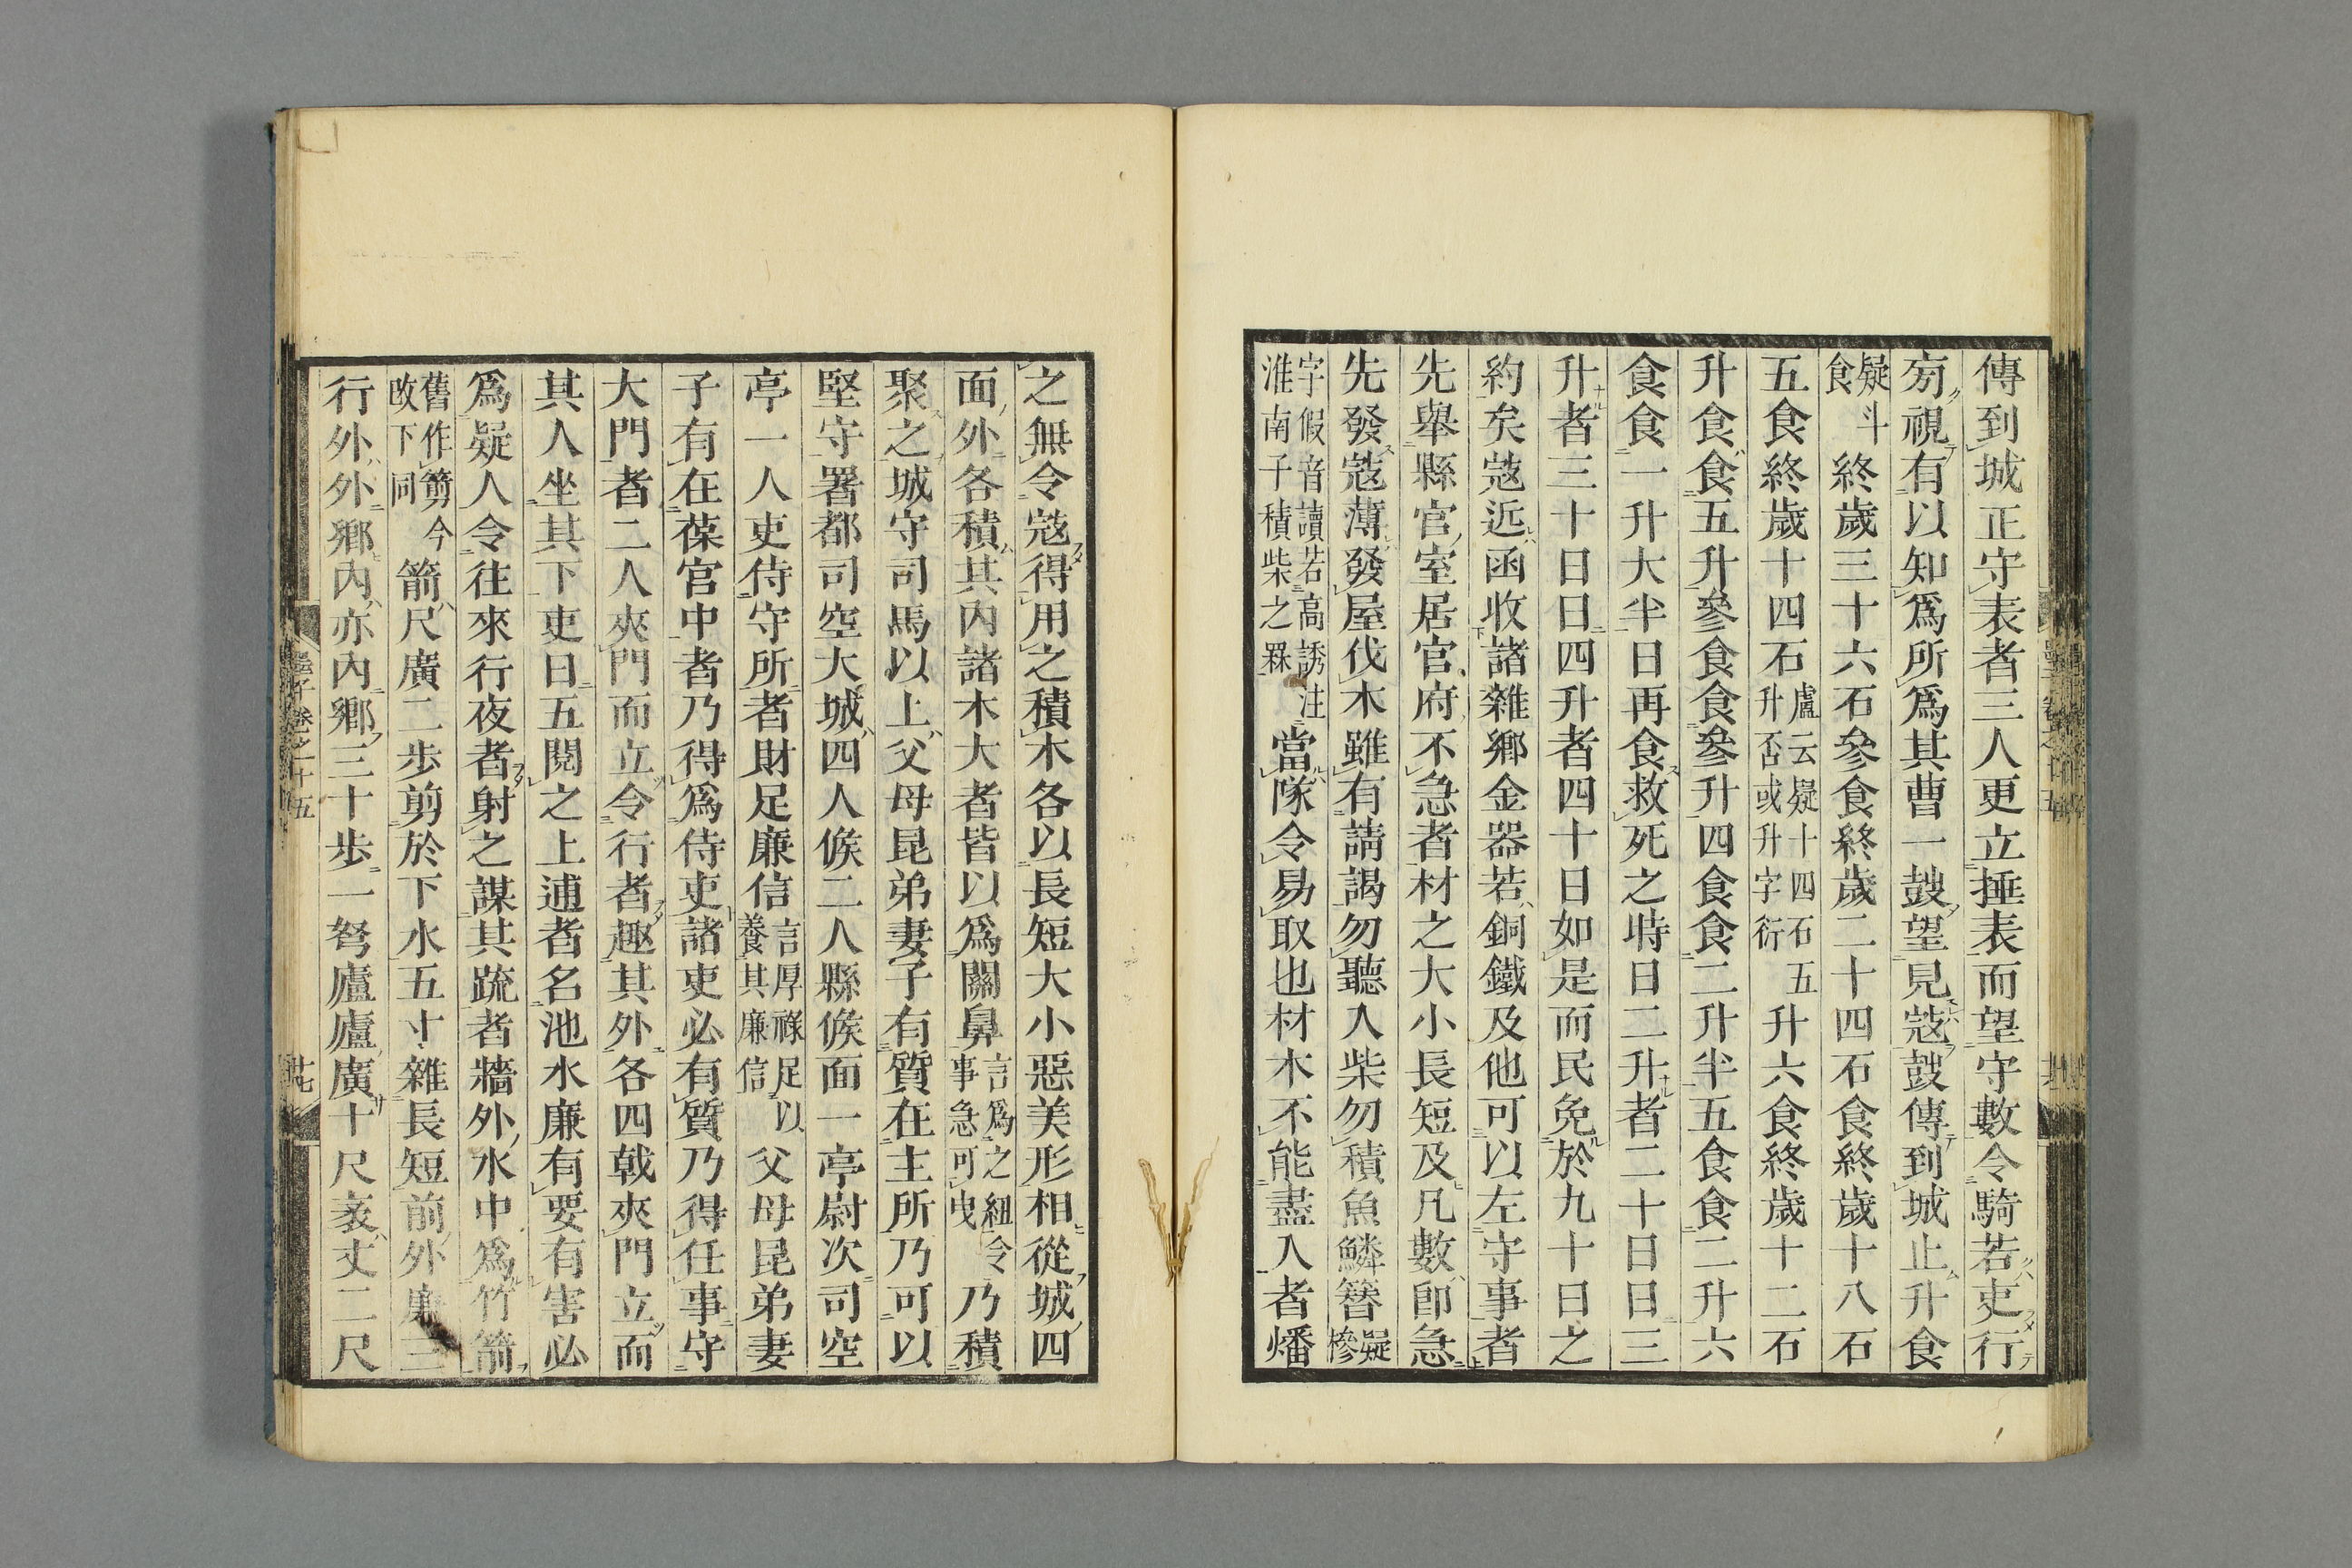 傳到城正守表者三人更立捶表而望守數令騎若吏行
旁視有以知爲所爲其曹一鼓望見寇鼓傳到城止升食
疑斗食終歲三十六石參食終歲二十四石食終歲十八石
五食終歲十四石盧云疑十四石五升否或升字衍升六食終歲十二石
升食食五升參食食參升四食食二升半五食食二升六
食食一升大半日再食救死之時日二升者二十日日三
升者三十日日四升者四十日如是而民免於九十日之
約矣寇近函收諸雜鄉金器若銅鐵及他可以左守事者
先舉縣官室居官府不急者材之大小長短及凡數卽急
先發寇薄發屋伐木雖有請謁勿聽入柴勿積魚鱗簪疑槮
字假音讀若高誘注淮南子積柴之罧當隊令易取也材木不能盡入者燔
之無令寇得用之積木各以長短大小惡美形相從城四
面外各積其內諸木大者皆以爲關鼻言爲之紐令事急可曳乃積
聚之城守司馬以上父母昆弟妻子有質在主所乃可以
堅守署都司空大城四人候二人縣候面一亭尉次司空
亭一人吏侍守所者財足廉信言厚祿足以養其廉信父母昆弟妻
子有在葆宮中者乃得爲侍吏諸吏必有質乃得任事守
大門者二人夾門而立令行者趣其外各四戟夾門立而
其人坐其下吏日五閱之上逋者名池水廉有要有害必
爲疑人令往來行夜者射之謀其疏者牆外水中爲竹箭
舊作箾今改下同箭尺廣二步剪於下水五寸雜長短前外廉三
行外外鄉內亦內鄉三十步一弩廬廬廣十尺袤丈二尺
墨子卷之十五
廿七